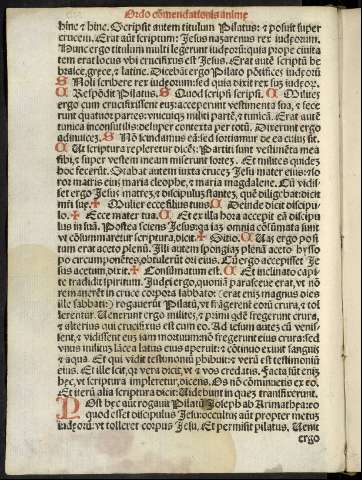 Ordo cōmendationis anime
hinc ⁊ hinc. Scripsit autem titulum Pilatus: ⁊ posuit super
crucem. Erat aūt scriptum: Jesus nazarenus rex iudęorum.
Hunc ergo titulum multi legerunt iudęorū: quia prope ciuita
tem erat locus vbi crucifixus est Jesus. Erat autē scriptū he
braice, gręce, ⁊ latine. Dicebāt ergo Pilato pōtifices iudęorū
S Noli scribere rex iudęorum: sed quia dixit rex suꝫ iudęor.
Respōdit Pilatus. S Quod scripsi scripsi. Milites
ergo cum crucifixissent eum: acceperunt vestimenta sua, ⁊ fece
runt quatuor partes: vnicuiqꝫ militi partē, ⁊ tunicā. Erat autē
tunica inconsutilis: desuper contexta per totū. Dixerunt ergo
adinuicē. S Nō scindamus eā: sed sortiamur de ea cuius sit.
Ut scriptura repleretur dicēs: Partiti sunt vestimēta mea
sibi; ⁊ super vestem meam miserunt sortez. Et milites quidez
hoc fecerūt. Stabāt autem iuxta crucez Jesu mater eius: so
ror matris eius maria cleophe, ⁊ maria magdalene. Cū vidis
set ergo Jesus matrez ⁊ discipulū stantez, quē diligebat: dicit
mr̄i suę. ✠ Mulier ecce filius tuus. Deinde dicit discipu
lo. ✠ Ecce mater tua. Et ex illa hora accepit eā discipu
lus in suā. Postea sciens Jesus: qa iaz omnia cōsūmata sunt
vt cōsūmaretur scriptura, dicit. ✠ Sitio. Uas ergo posi
tum erat aceto plenū. Illi autem spongiaz plenā aceto hysso
po circumponētes, obtulerūt ori eius. Cū ergo accepisset Je
sus acetum, dixit. ✠ Consūmatum est. Et inclinato capi
te tradidit spiritum. Judęi ergo, quoniā parasceue erat, vt nō
remanerēt in cruce corpora sabbato: (erat enim magnus dies
ille sabbati) rogauerūt Pilatū, vt frāgerent eorū crura, ⁊ tol
lerentur. Uenerunt ergo milites, ⁊ primi qdē fregerunt crura,
⁊ alterius qui crucifixus est cum eo. Ad iesum autez cū venis
sent, ⁊ vidissent eum iam mortuum: nō fregerunt eius crura: sed
vnus militum lācea latus eius aperuit: ⁊ cōtinuo exiuit sanguis
⁊ aqua. Et qui vidit testimoniū phibuit: ⁊ verū est testimoniū
eius. Et ille scit, qz vera dicit, vt ⁊ vos credatis. Facta sūt enim
hęc, vt scriptura impleretur, dicens. Os nō cōminuetis ex eo.
Et iterū alia scriptura dicit: Uidebunt in quez transfixerunt.
Post hęc aūt rogauit Pilatū Joseph ab Arimathęa: eo
quod esset discipulus Jesu: occultus aūt propter metuz
iudęorū: vt tolleret corpus Jesu. Et permisit pilatus. Uenit
ergo